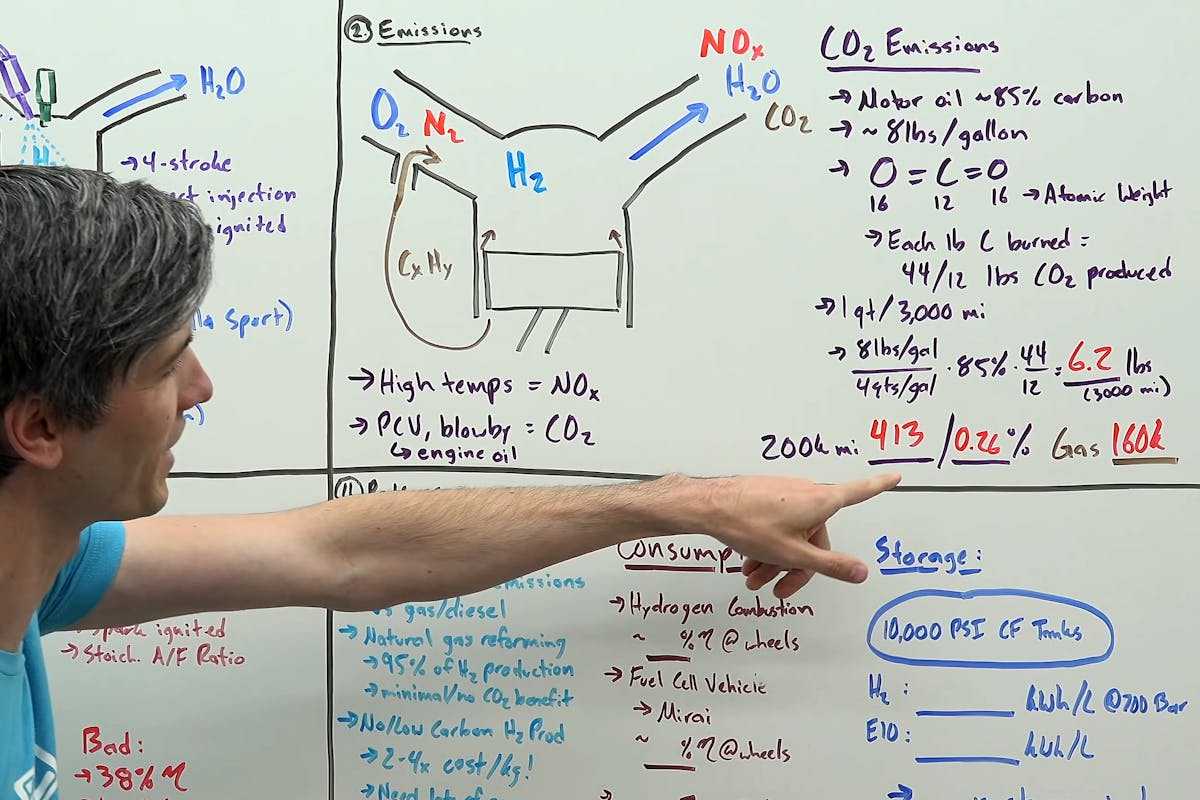 H₂O
H₂
→ 4-stroke
injection
ignited
Sport)
② Emissions
O₂ N₂
H₂
NOx
H₂O
CO₂
CxHy
→ High temps = NOx
→ PCV, blowby = CO₂
↳ engine oil
CO₂ Emissions
→ Motor oil ~85% carbon
→ ~8lbs/gallon
→ O = C = O
16 12 16 → Atomic Weight
→ Each lb C burned =
44/12 lbs CO₂ produced
→ 1 qt/3,000 mi
→ 8lbs/gal / 4qts/gal · 85% · 44/12 = 6.2 lbs
(3000 mi)
200k mi 413 / 0.26% Gas 160k
Spark ignited
→ Stoich. A/F Ratio
Bad:
→ 38% η
emissions
vs gas/diesel
→ Natural gas reforming
→ 95% of H₂ production
→ minimal/no CO₂ benefit
→ No/Low Carbon H₂ Prod
→ 2-4x cost/kg!
→ Need lots of
→ Hydrogen Combustion
~ __ % η @ wheels
→ Fuel Cell Vehicle
→ Mirai
~ __ % η @ wheels
Storage:
10,000 PSI CF Tanks
H₂ : ____ kWh/L @ 700 Bar
E10 : ____ kWh/L